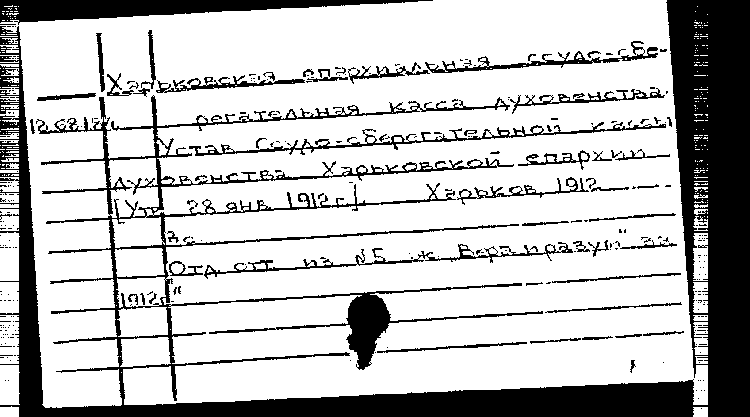 Харьковская епархиальная ссудо-сбе-
регательная касса духовенства.
Устав Ссудо-сберегательной кассы
духовенства Харьковской епархии
[Утв. 28 янв. 1912 г.] Харьков, 1912
Отд. отт. из №5 ж. „Вера и разум" за
1912г."